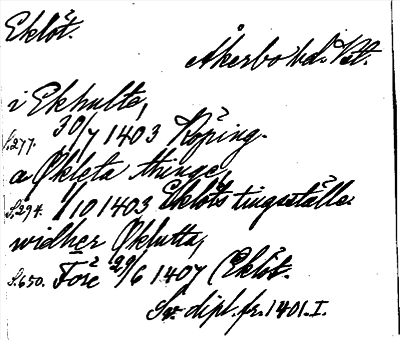 Eklöt.
Åkerbo hd. Vst.
i Ekhulte,
S.277. 30/7 1403 Köping.
a Økleta thinge,
S.294. 1/10 1403 Eklöts tingsställe.
widher Øklutta,
S.650. Före 29/6 1407 (Eklöt.
Sv. dipl. fr. 1401. I.